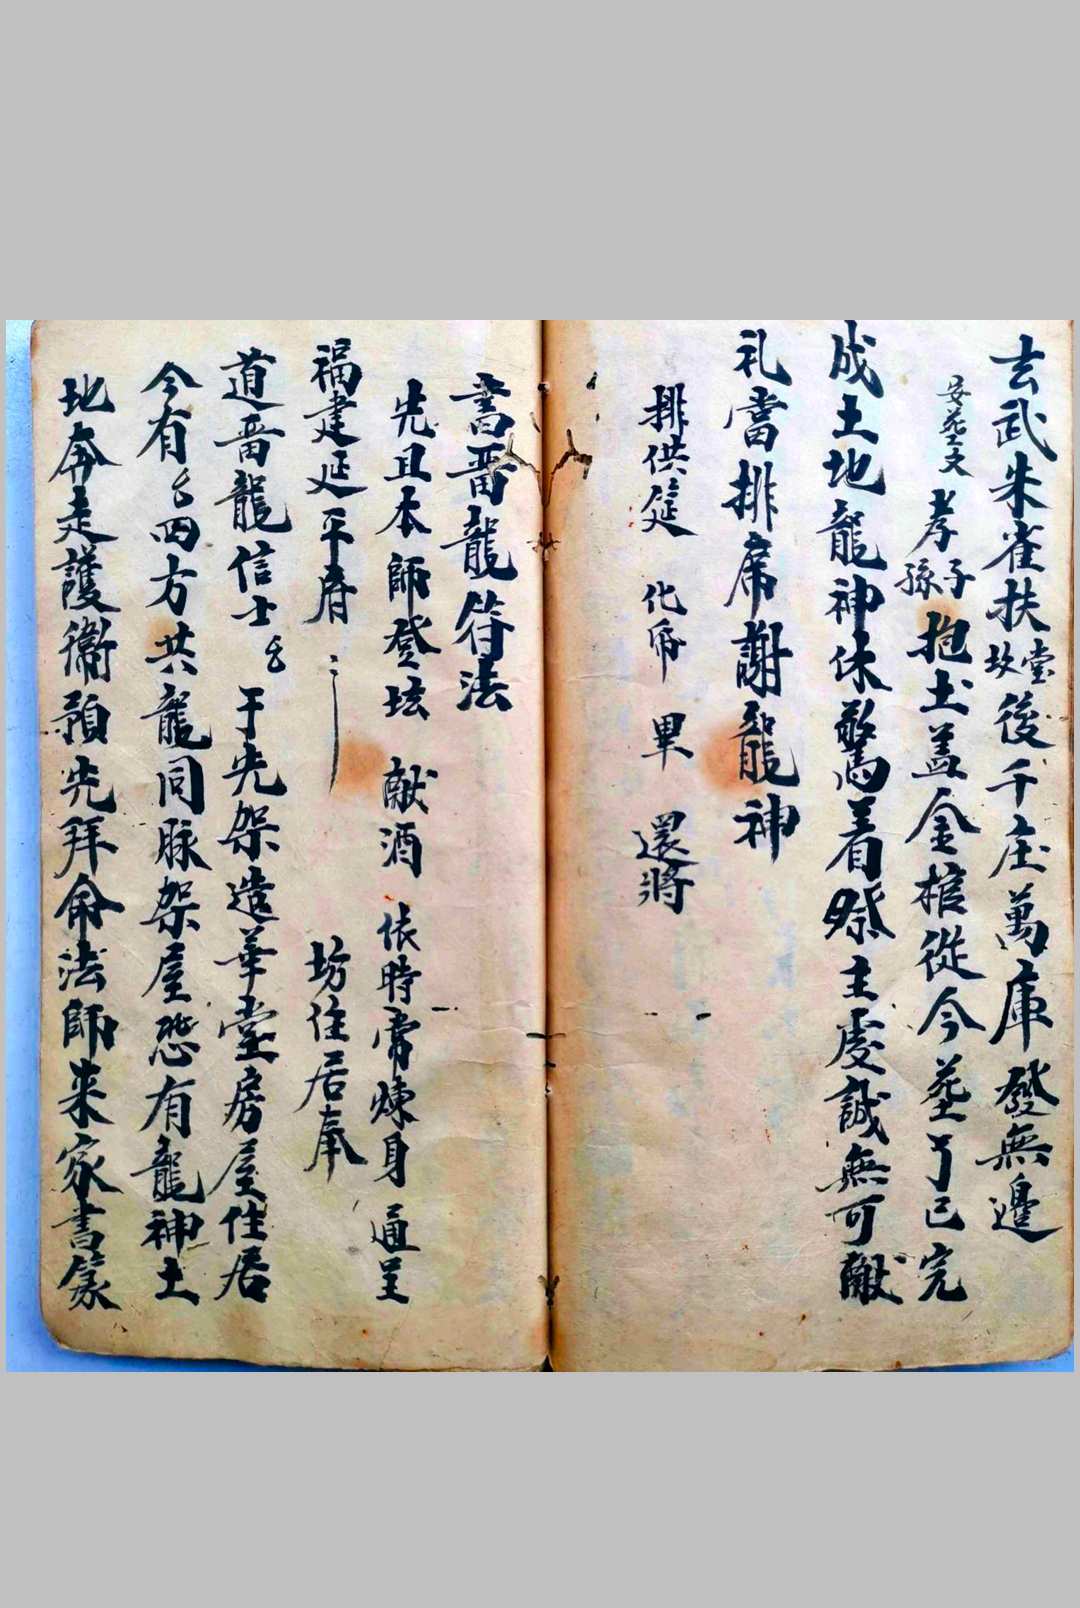 玄武朱雀扶堂坟後千庄萬庫發無邊
安葬文 孝子孫抱土盖金棺從今葬了已完
成土地龍神休驚着祭主虔誠無可献
礼當排席謝龍神
排供筵 化帛 畢 還將
書畨龍符法
先且本師登坛 献酒 依時常煉身 通呈
福建延平府 坊住居奉
道畨龍信士 于先架造華堂房屋住居
今有 四方共龍同脉架屋恐有龍神土
地奔走護衛預先拜命法師来家書篆